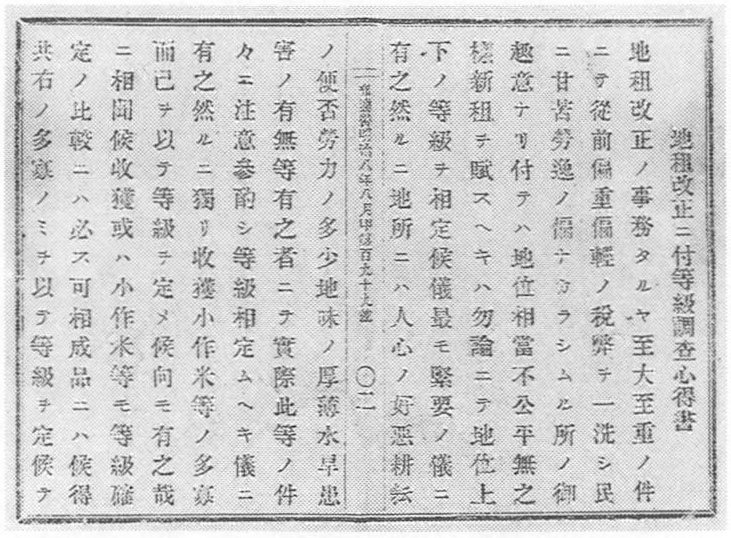 地租改正ニ付等級調査心得書
地租改正ノ事務タルヤ至大至重ノ件
ニテ從前偏重偏輕ノ税弊ヲ一洗シ民
ニ甘苦勞逸ノ偏ナカラシムル所ノ御
趣意ナリ付テハ地位相當不公平無之
樣新租ヲ賦スヘキハ勿論ニテ地位上
下ノ等級ヲ相定候儀最モ緊要ノ儀ニ
有之然ルニ地所ニハ人心ノ好惡耕耘
年八月甲第百九十九號 〇二
ノ便否勞力ノ多少地味ノ厚薄水旱患
害ノ有無等有之者ニテ實際此等ノ件
々ニ注意參酌シ等級相定ムヘキ儀ニ
有之然ルニ獨リ收獲小作米等ノ多寡
而已ヲ以テ等級ヲ定メ候向モ有之哉
ニ相聞候收獲或ハ小作米等モ等級確
定ノ比較ニハ必ス可相成品ニハ候得
共右ノ多寡ノミヲ以テ等級ヲ定候テ